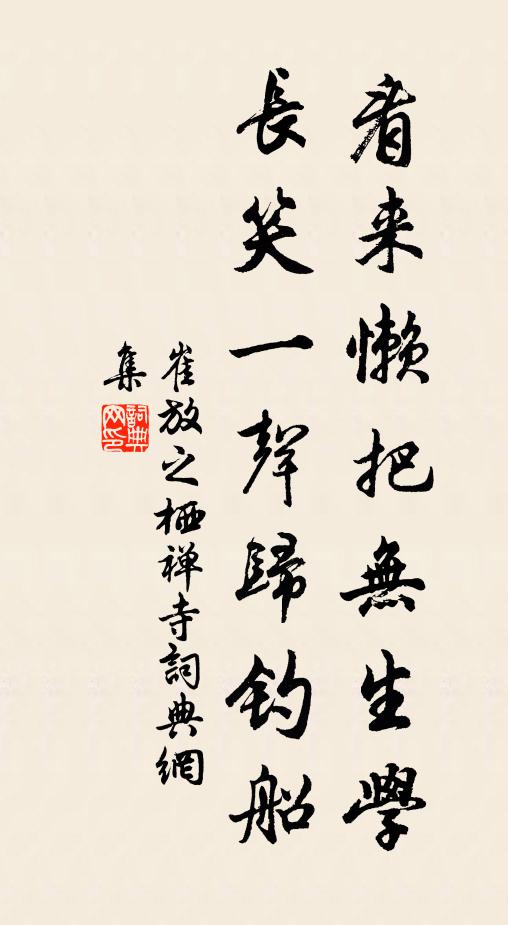 看来懶把無生學
長笑一聲歸釣船
崔放之栖禅寺詞典網
集
詞典网印